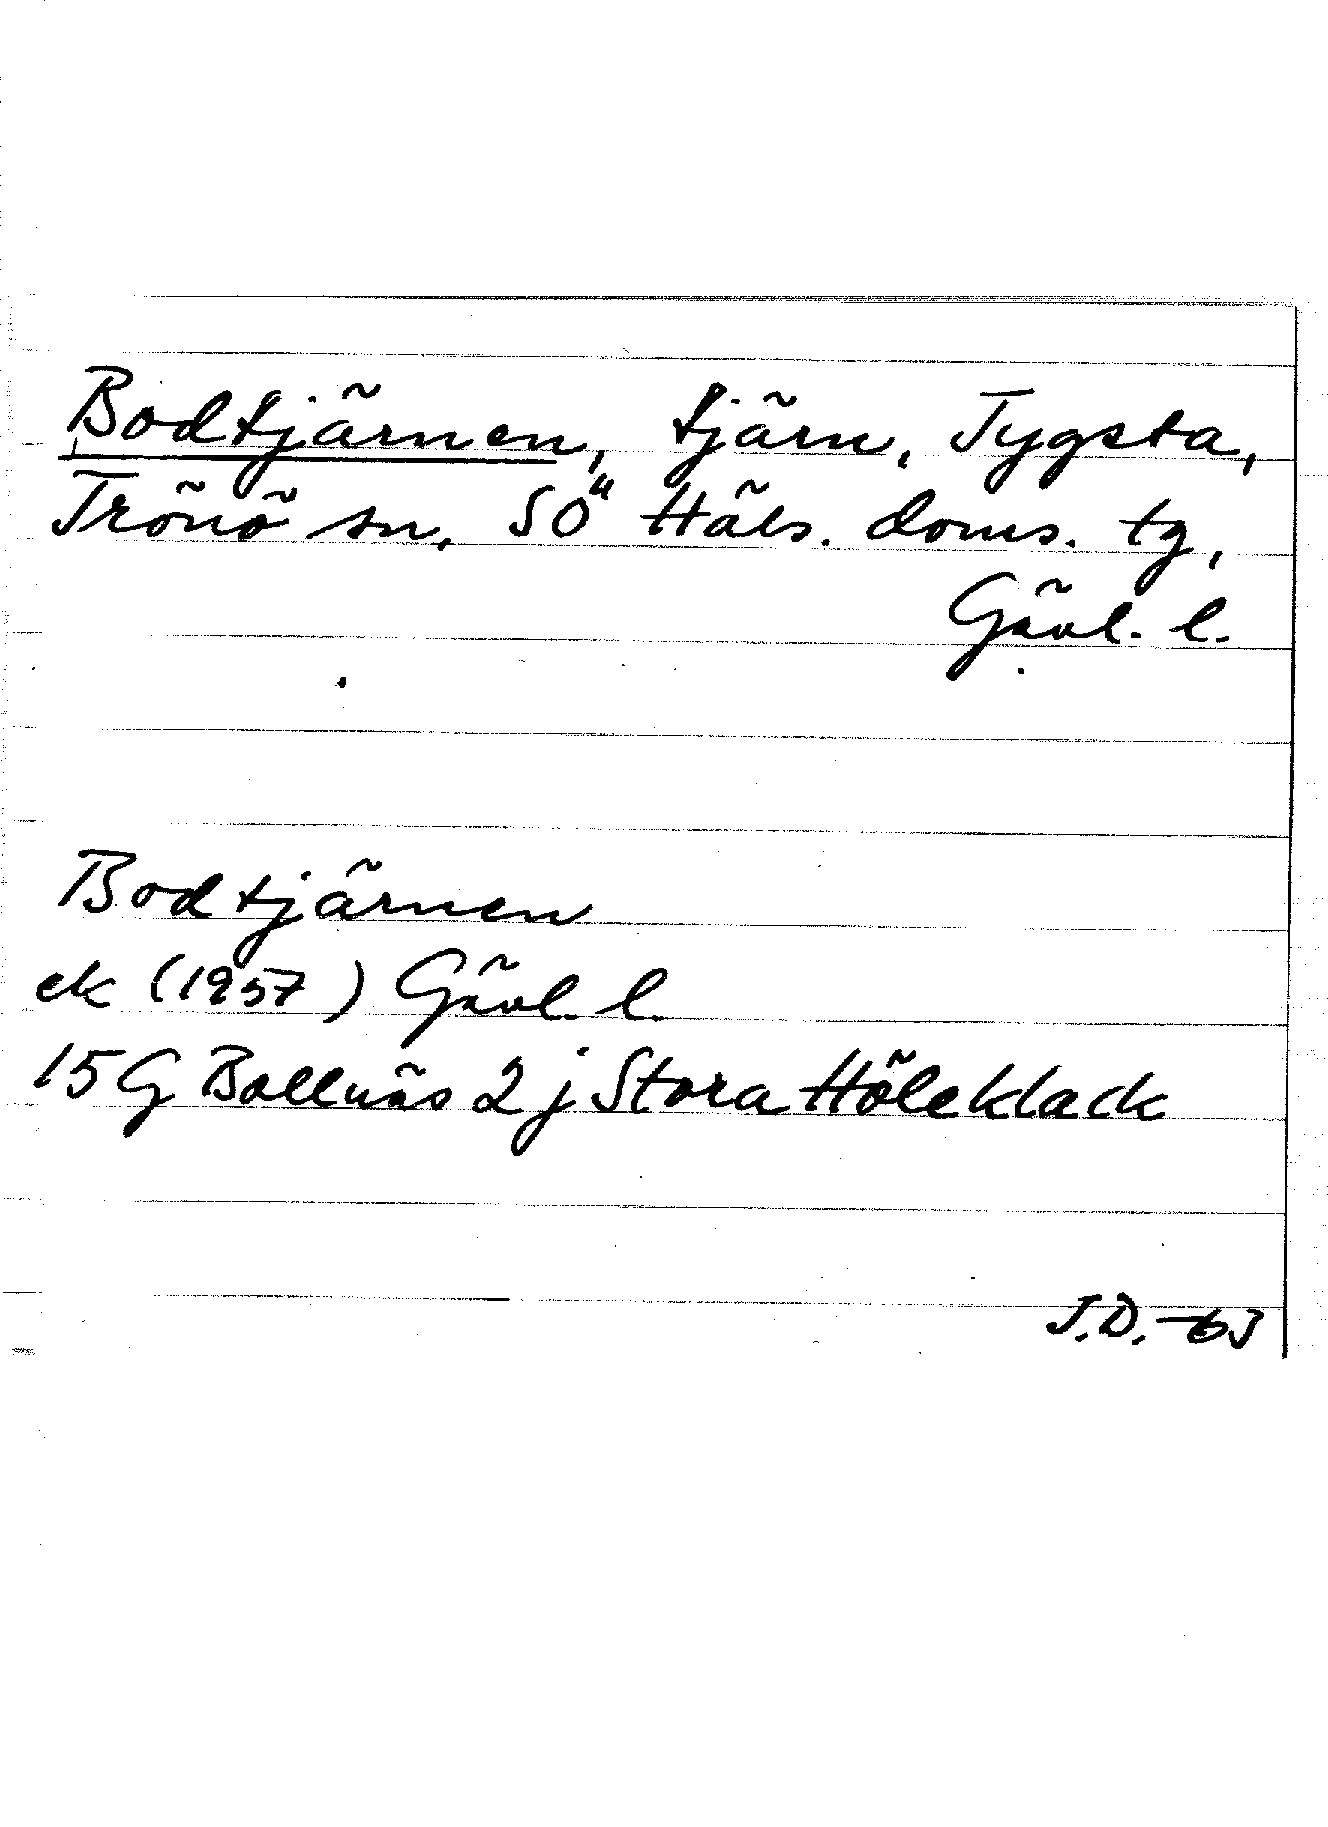 Bodtjärnen, tjärn, Tygsta,
Trönö sn, SÖ Häls. doms. tg,
Gävl. l.
Bodtjärnen
ek (1957) Gävl. l.
15 G Bollnäs 2 j Stora Höleklack
J.D. -63